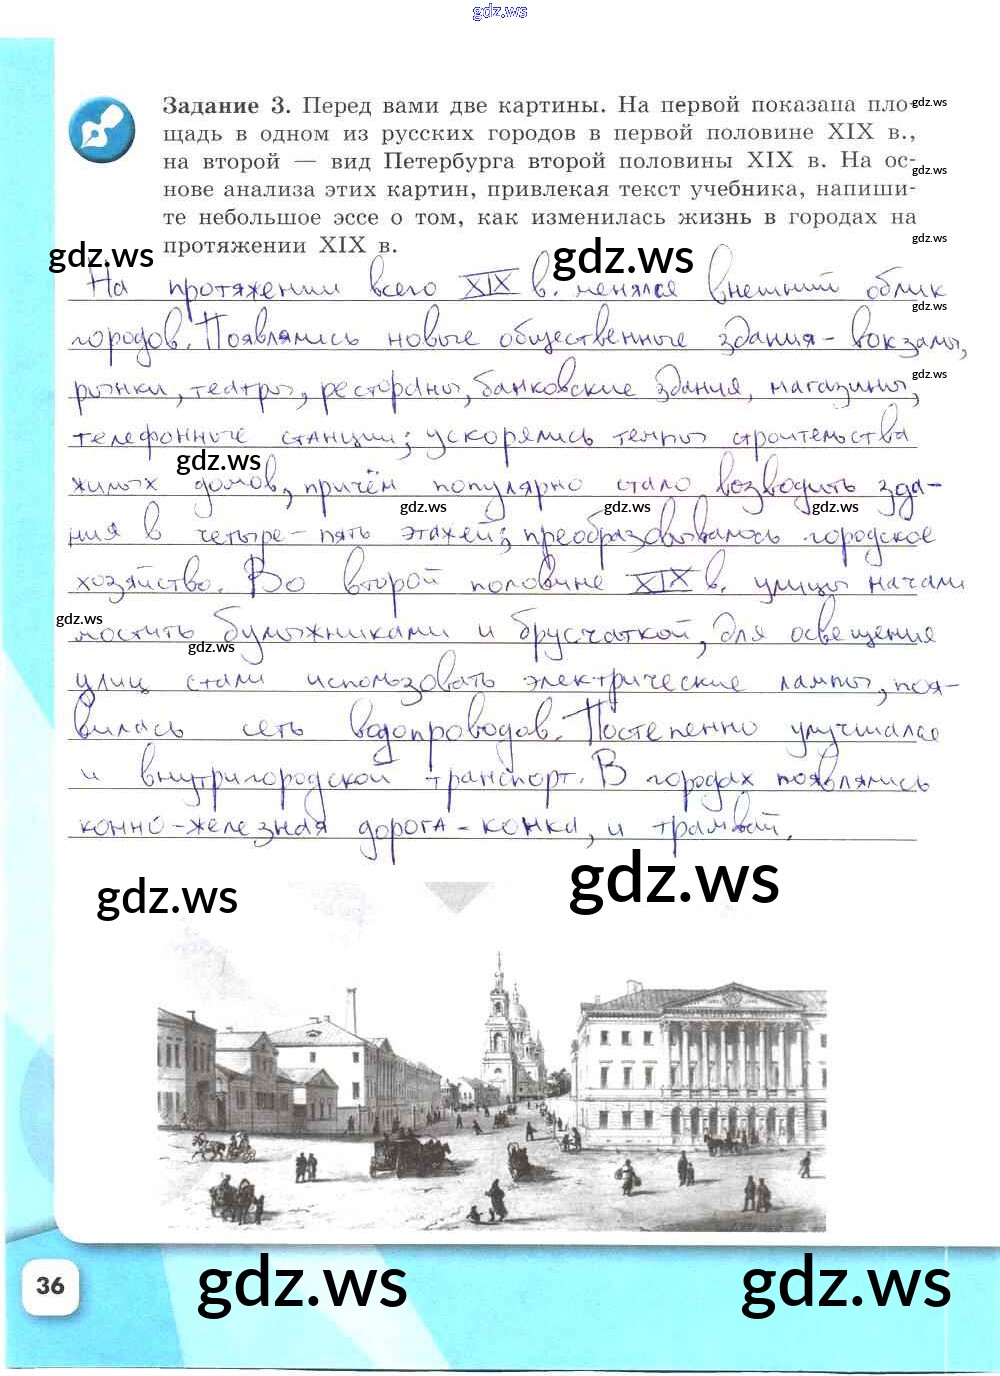 gdz.ws
Задание 3. Перед вами две картины. На первой показана пло-
gdz.ws
щадь в одном из русских городов в первой половине XIX в.,
на второй — вид Петербурга второй половины XIX в. На ос-
gdz.ws
нове анализа этих картин, привлекая текст учебника, напиши-
те небольшое эссе о том, как изменилась жизнь в городах на
gdz.ws
протяжении XIX в.
gdz.ws
gdz.ws
На протяжении всего XIX в. менялся внешний облик
gdz.ws
городов. Появлялись новые общественные здания - вокзалы,
gdz.ws
рынки, театры, рестораны, банковские здания, магазины,
телефонные станции; ускорялись темпы строительства
gdz.ws
жилых домов, причём популярно стало возводить зда-
gdz.ws gdz.ws gdz.ws
ния в четыре-пять этажей; преобразовывалось городское
хозяйство. Во второй половине XIX в. улицы начали
gdz.ws
мостить булыжниками и брусчаткой, для освещения
gdz.ws
улиц стали использовать электрические лампы, поя-
вилась сеть водопроводов. Постепенно улучшался
и внутригородской транспорт. В городах появлялись
конно-железная дорога - конка, и трамвай.
gdz.ws
gdz.ws
36
gdz.ws
gdz.ws